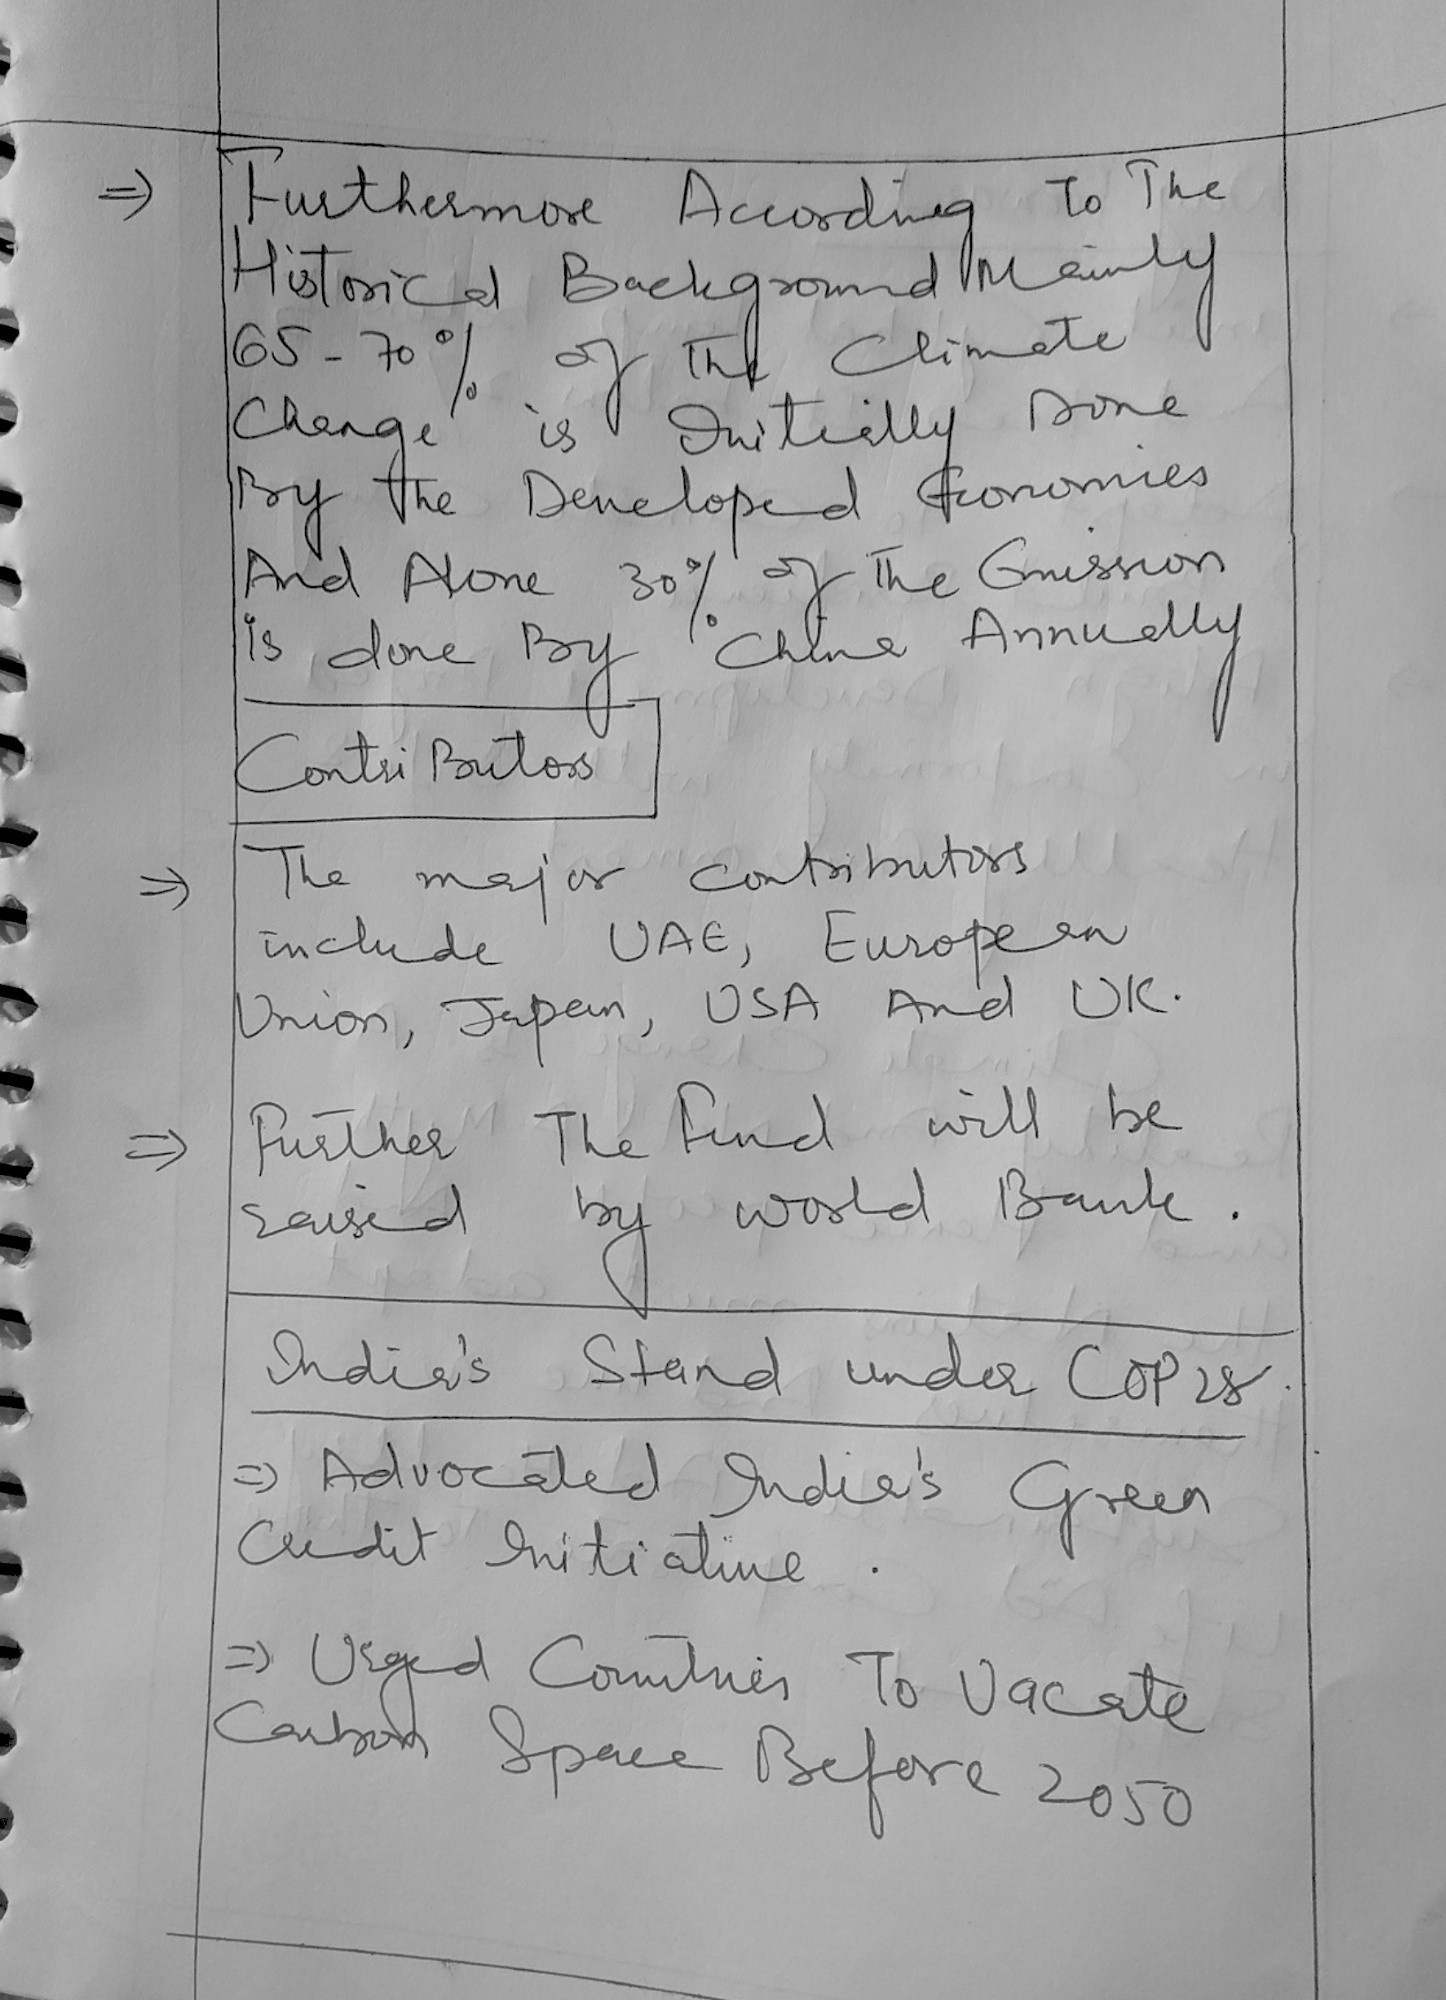 ⇒ Furthermore According To The
Historical Background Mainly
65-70% of The Climate
Change is Initially Done
By the Developed Economies
And Alone 30% of The Emission
is done By China Annually
Contributors
⇒ The major contributors
include UAE, European
Union, Japan, USA And UK.
⇒ Further The Fund will be
raised by world Bank.
India's Stand under COP 28.
⇒ Advocated India's Green
Credit Initiative.
⇒ Urged Countries To Vacate
Carbon Space Before 2050